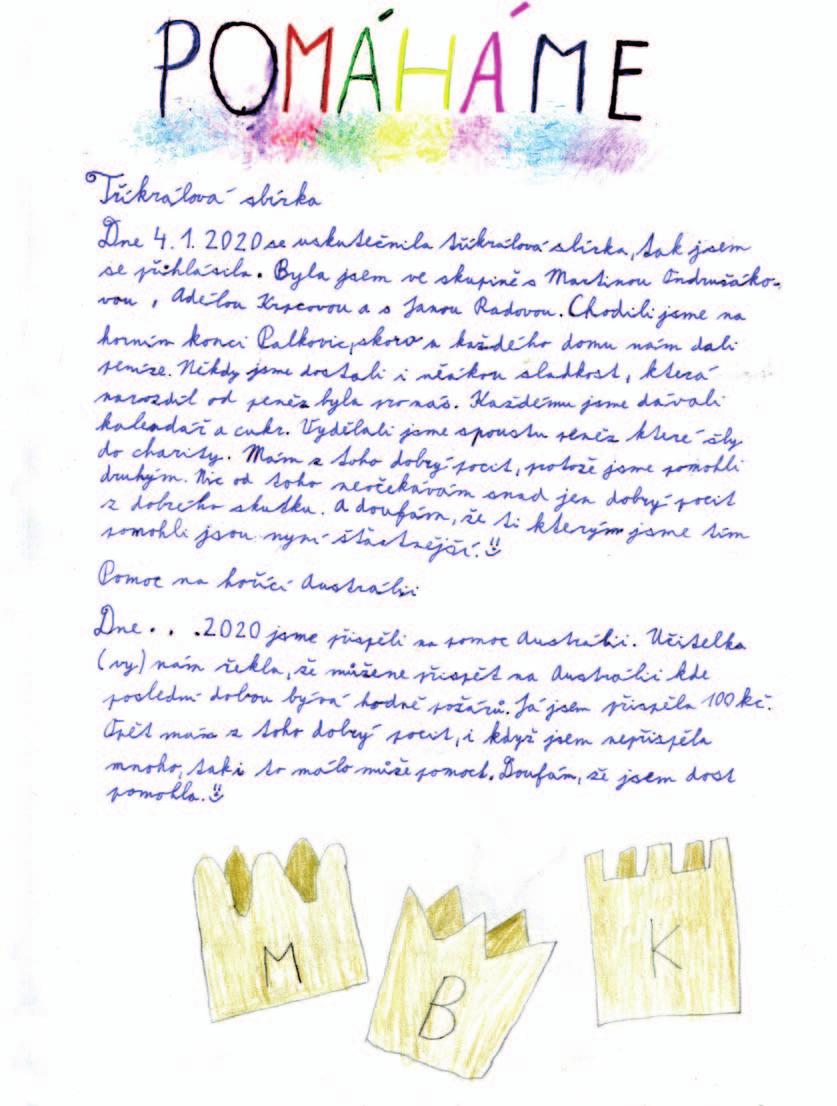 POMÁHÁME
Tříkrálová sbírka
Dne 4.1.2020 se uskutečnila tříkrálová sbírka, tak jsem
se přihlásila. Byla jsem ve skupině s Martinou Ondrušáko-
vou, Adélou Krpcovou a s Janou Radovou. Chodili jsme na
horním konci Palkovic, skoro u každého domu nám dali
peníze. Někdy jsme dostali i něakou sladkost, která
narozdíl od peněz byla pro nás. Každému jsme dávali
kalendář a cukr. Vydělali jsme spoustu peněz které šly
do charity. Mám z toho dobrý pocit, protože jsme pomohli
druhým. Nic od toho neočekávám snad jen dobrý pocit
z dobrého skutku. A doufám, že ti kterým jsme tím
pomohli jsou nyní šťastnější.
Pomoc na hořící Austrálii
Dne . . .2020 jsme přispěli na pomoc Austrálii. Učitelka
(vy) nám řekla, že můžene přispět na Austrálii kde
poslední dobou bývá hodně požárů. Já jsem přispěla 100 kč.
Opět mám z toho dobrý pocit, i když jsem nepřispěla
mnoho, taki to málo může pomoct. Doufám, že jsem dost
pomohla.
M
B
K